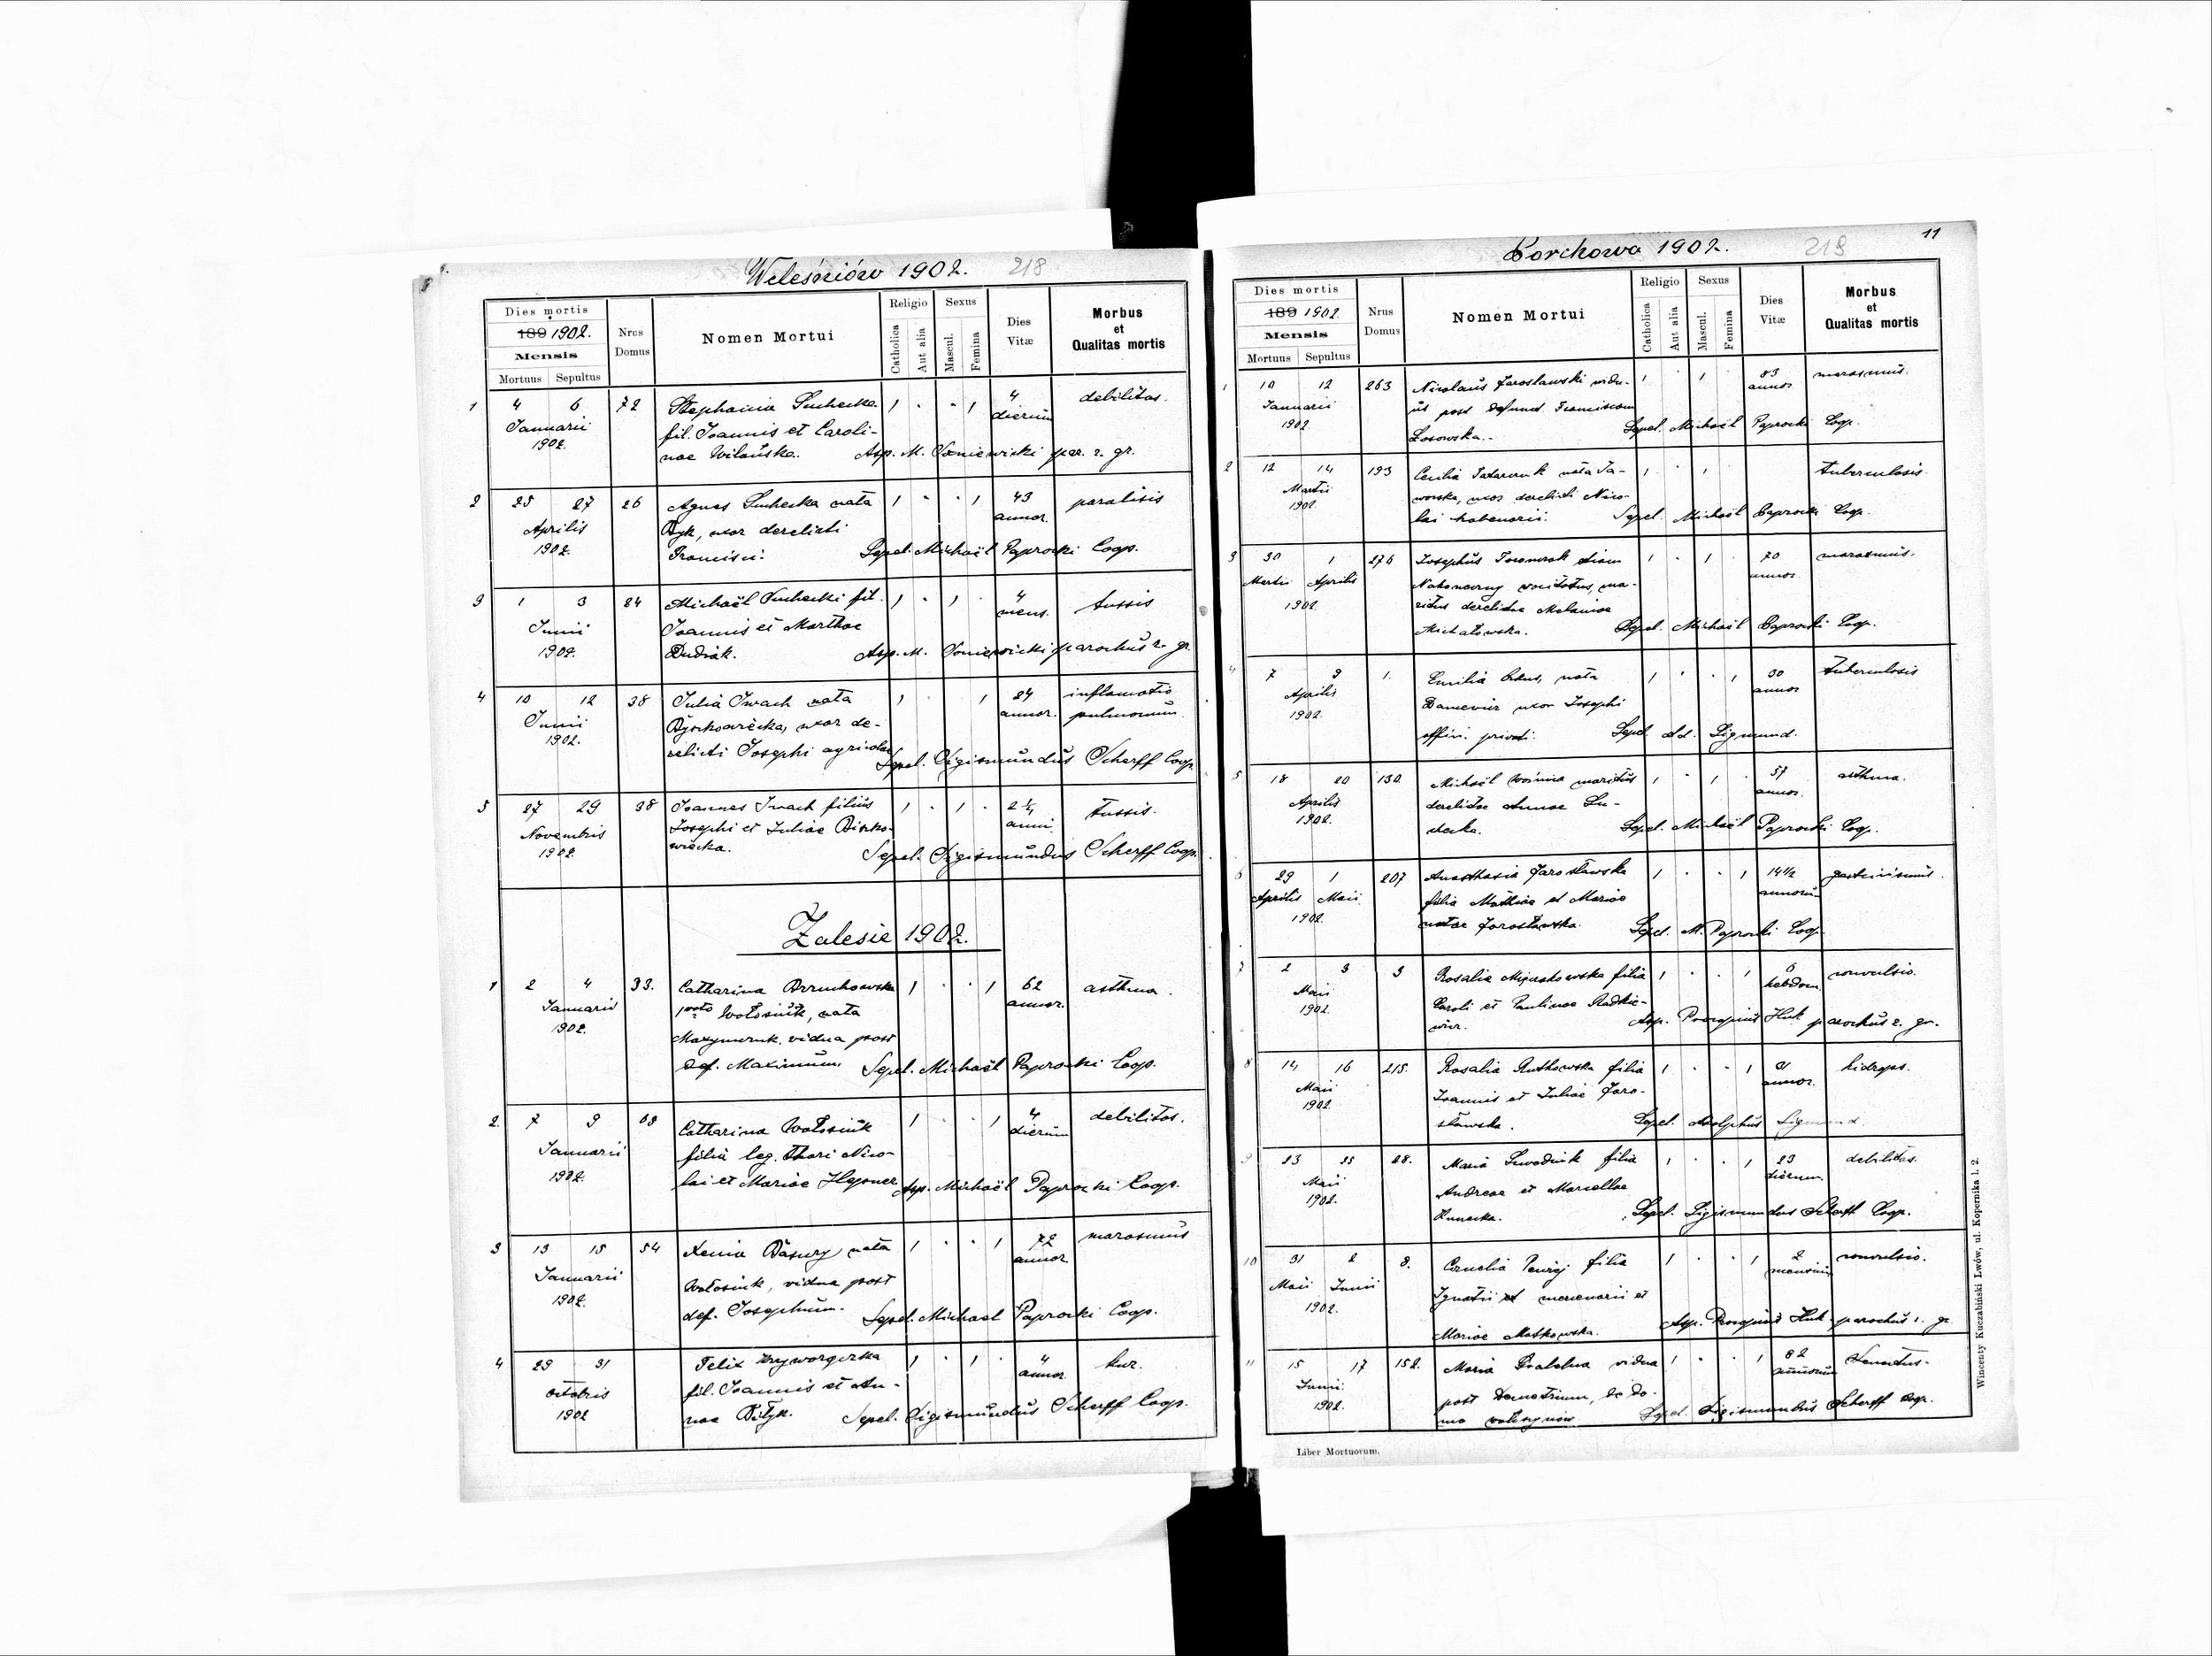 Weleśniów 1902. 218
Dies mortis
189 1902.
Mensis
Mortuus Sepultus
Nrus Domus
Nomen Mortui
Religio
Catholica
Aut alia
Sexus
Mascul.
Femina
Dies Vitæ
Morbus et Qualitas mortis
1 4 6 72 Stephania Suchecka 1 · · 1 4 debilitas.
Januarii fil. Joannis et Caroli- dierum
1902. nae Wilańska. Asp. M. par. r. gr.
2 25 27 26 Agnes Suchecka nata 1 · · 1 43 paralisis
Aprilis Byk, uxor derelicti annor.
1902. Francisci. Sepel. Michaël Paprocki Coop.
3 1 3 84 Michaël Suchecki fil. 1 · 1 · 4 tussis
Junii Joannis et Marthae mens.
1902. Dudiak. Asp. M. parochus r. gr.
4 10 12 38 Julia Iwach nata 1 1 24 inflamatio
Junii uxor de- annor. pulmonum.
1902. relicti Josephi agricolae Sepel. Sigismundus Scherff Coop.
5 27 29 38 Joannes Iwach filius 1 · 1 · 2 ½ tussis.
Novembris Josephi et Juliae Bisko- anni
1902. wiecka. Sepel. Sigismundus Scherff Coop.
Zalesie 1902.
1 2 4 33. Catharina 1 · · 1 62 asthma.
Januarii 1voto Wołosiuk, nata annor.
1902. vidua post
def. Maximum. Sepel. Michaël Paprocki Coop.
2. 7 9 69 Catharina Wołosiuk 1 · · 1 4 debilitas.
Januarii filia leg. thori Nico- dierum
1902. lai et Mariae Asp. Michaël Paprocki Coop.
3 13 15 54 Xenia nata 1 · · 1 72 marasmus
Januarii Wołosiuk, vidua post annor.
1902. def. Josephum. Sepel. Michael Paprocki Coop.
4 29 31 Felix 1 · 1 · 4
Octobris fil. Joannis et An- annor.
1902 nae Sepel. Sigismundus Scherff Coop.
Porchowa 1902. 219 11
Dies mortis
189 1902.
Mensis
Mortuus Sepultus
Nrus Domus
Nomen Mortui
Religio
Catholica
Aut alia
Sexus
Mascul.
Femina
Dies Vitæ
Morbus et Qualitas mortis
1 10 12 263 Nicolaus Jarosławski vidu- 1 1 83 marasmus.
Januarii us post defunct. Franciscam annor.
1902. Łosowska. Sepel. Michaël Paprocki Coop.
2 12 14 193 Cecilia nata Ja- 1 · 1 tuberculosis.
Martii worska, uxor derelicti Nico-
1902. lai Sepel. Michaël Paprocki Coop.
3 30 1 276 Josephus etiam 1 · 1 · 70 marasmus.
Martii Aprilis ma- annor.
1902. ritus derelictae Melaniae
Michałowska. Sepel. Michaël Paprocki Coop.
4 7 9 1. Emilia nata 1 · · 1 30 tuberculosis
Aprilis uxor Josephi annor.
1902. privati. Sepel. Ad. Sigmund.
5 18 20 130. Michaël maritus 1 · 1 · 57 asthma.
Aprilis derelictae Annae Su- annor.
1902. checka. Sepel. Michaël Paprocki Coop.
6 29 1 207 Anasthasia Jarosławska 1 · · 1 14½
Aprilis Maii filia et Mariae annorum
1902. natae Jarosławska. Sepel. M. Paprocki Coop.
7 2 3 3 Rosalia filia 1 · · 1 6 convulsio.
Maii Caroli et Paulinae Radkie- hebdom.
1902. wicz. Asp. Procopius Huk parochus r. gr.
8 14 16 215. Rosalia Rutkowska filia 1 · · 1 21 hidrops.
Maii Joannis et Juliae Jaro- annor.
1902. sławska. Sepel. Adolphus Sigmund.
9 23 25 28. Maria filia 1 · · 1 23 debilitas.
Maii Andreae et Marcellae dierum.
1902. Sepel. Sigismundus Scherff Coop.
10 31 2 8. Cornelia filia 1 · · 1 2 convulsio.
Maii Junii Ignatii et mercenarii et mensium
1902. Mariae Asp. Procopius Huk parochus r. gr.
11 15 17 152. Maria vidua 1 · · 1 82
Junii post Demetrium, de do- annorum
1902. mo Sepel. Sigismundus Scherff Coop.
Liber Mortuorum.
Wincenty Kuczabiński Lwów, ul. Kopernika l. 2